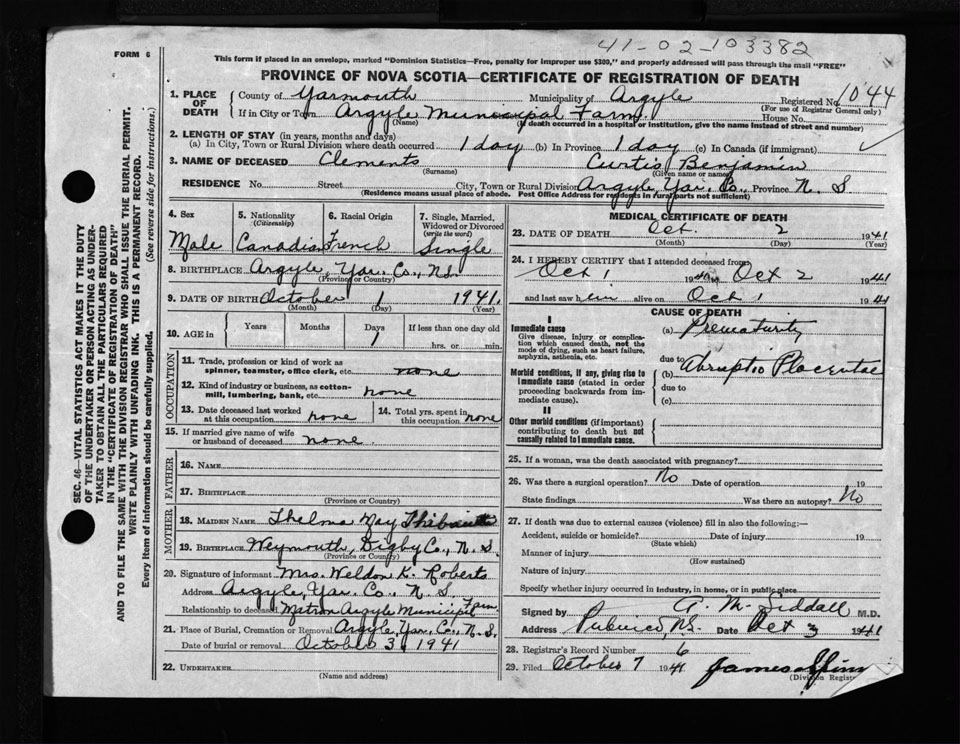 41-02-103382
FORM 6
This form if placed in an envelope, marked "Dominion Statistics—Free, penalty for improper use $300," and properly addressed will pass through the mail "FREE"
PROVINCE OF NOVA SCOTIA—CERTIFICATE OF REGISTRATION OF DEATH
1. PLACE OF DEATH County of Yarmouth Municipality of Argyle Registered No. 1044
(For use of Registrar General only)
If in City or Town Argyle Municipal Farm House No.
(Name) (If death occurred in a hospital or institution, give the name instead of street and number)
2. LENGTH OF STAY (in years, months and days)
(a) In City, Town or Rural Division where death occurred 1 day (b) In Province 1 day (c) In Canada (if immigrant)
3. NAME OF DECEASED Clements Curtis Benjamin
(Surname) (Given name or names)
RESIDENCE No. Street City, Town or Rural Division Argyle, Yar. Co., Province N. S
(Residence means usual place of abode. Post Office Address for residents in rural parts not sufficient)
4. Sex 5. Nationality (Citizenship) 6. Racial Origin 7. Single, Married, Widowed or Divorced (write the word)
Male Canadian French Single
8. BIRTHPLACE Argyle, Yar. Co., N.S.
(Province or Country)
9. DATE OF BIRTH October 1 1941.
(Month) (Day) (Year)
10. AGE in Years Months Days If less than one day old
1 hrs. or min.
OCCUPATION
11. Trade, profession or kind of work as spinner, teamster, office clerk, etc. none
12. Kind of industry or business, as cotton-mill, lumbering, bank, etc. none
13. Date deceased last worked at this occupation none 14. Total yrs. spent in this occupation none
15. If married give name of wife or husband of deceased none
FATHER
16. NAME
17. BIRTHPLACE
(Province or Country)
MOTHER
18. MAIDEN NAME Thelma May
19. BIRTHPLACE Weymouth, Digby Co., N. S.
(Province or Country)
20. Signature of informant Mrs. Weldon K. Roberts
Address Argyle, Yar. Co. N. S.
Relationship to deceased Matron Argyle Municipal Farm
21. Place of Burial, Cremation or Removal Argyle, Yar. Co., N. S.
Date of burial or removal October 3, 1941
22. UNDERTAKER
(Name and address)
MEDICAL CERTIFICATE OF DEATH
23. DATE OF DEATH Oct. 2 1941
(Month) (Day) (Year)
24. I HEREBY CERTIFY that I attended deceased from
Oct 1 194 to Oct 2 1941
and last saw him alive on Oct 1 1941
CAUSE OF DEATH
I
Immediate cause
Give disease, injury or complication which caused death, not the mode of dying, such as heart failure, asphyxia, asthenia, etc.
(a) Prematurity
due to
Morbid conditions, if any, giving rise to immediate cause (stated in order proceeding backwards from immediate cause).
(b) Abruptio Placentae
due to
(c)
II
Other morbid conditions (if important) contributing to death but not causally related to immediate cause.
25. If a woman, was the death associated with pregnancy?
26. Was there a surgical operation? No Date of operation 19
State findings Was there an autopsy? No
27. If death was due to external causes (violence) fill in also the following:—
Accident, suicide or homicide? Date of injury 19
(State which)
Manner of injury
(How sustained)
Nature of injury
Specify whether injury occurred in industry, in home, or in public place
Signed by A. M. Siddall M.D.
Address Pubnico, N.S. Date Oct 3 1941
28. Registrar's Record Number 6
29. Filed October 7 1941
(Division Registrar)
SEC. 46—VITAL STATISTICS ACT MAKES IT THE DUTY
OF THE UNDERTAKER OR PERSON ACTING AS UNDER-
TAKER TO OBTAIN ALL THE PARTICULARS REQUIRED
IN THE "CERTIFICATE OF REGISTRATION OF DEATH"
AND TO FILE THE SAME WITH THE DIVISION REGISTRAR WHO SHALL ISSUE THE BURIAL PERMIT.
WRITE PLAINLY WITH UNFADING INK. THIS IS A PERMANENT RECORD.
Every item of information should be carefully supplied. (See reverse side for instructions.)